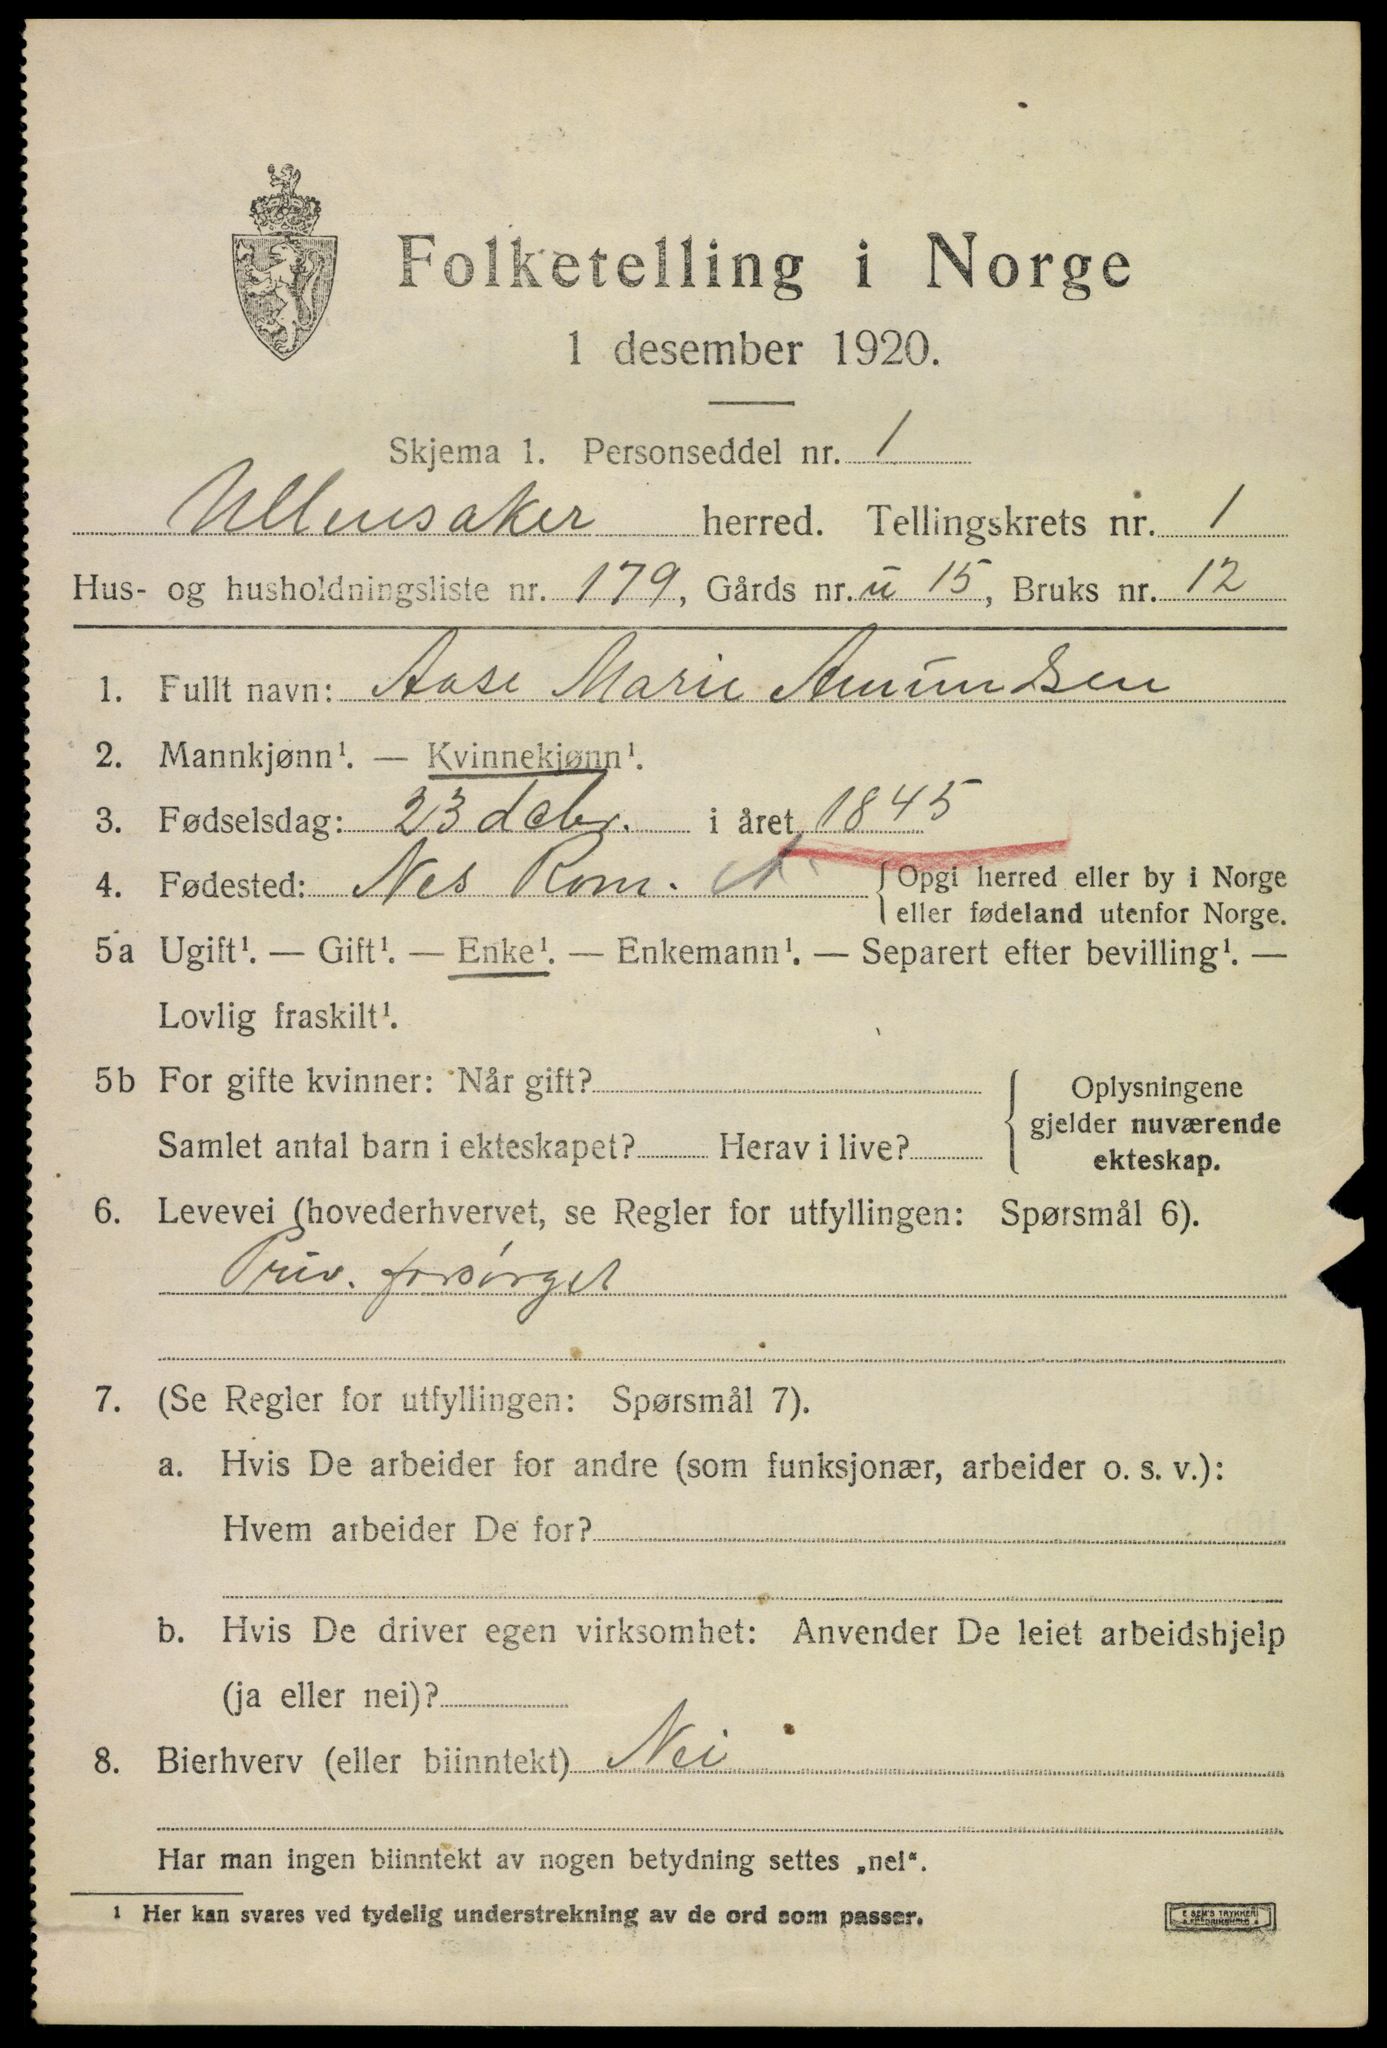 Folketelling i Norge
1 desember 1920.
Skjema 1. Personseddel nr. 1
Ullensaker herred. Tellingskrets nr. 1
Hus- og husholdningsliste nr. 179, Gårds nr. u 15, Bruks nr. 12
1. Fullt navn: Aase Marie Amundsen
2. Mannkjønn¹. — Kvinnekjønn¹.
3. Fødselsdag: 23 dcbr. i året 1845
4. Fødested: Nes Rom. A. {Opgi herred eller by i Norge
eller fødeland utenfor Norge.
5a Ugift¹. — Gift¹. — Enke¹. — Enkemann¹. — Separert efter bevilling¹. —
Lovlig fraskilt¹.
5b For gifte kvinner: Når gift?
Samlet antal barn i ekteskapet? Herav i live?
Oplysningene
gjelder nuværende
ekteskap.
6. Levevei (hovederhvervet, se Regler for utfyllingen: Spørsmål 6).
Priv. forsørget
7. (Se Regler for utfyllingen: Spørsmål 7).
a. Hvis De arbeider for andre (som funksjonær, arbeider o. s. v.):
Hvem arbeider De for?
b. Hvis De driver egen virksomhet: Anvender De leiet arbeidshjelp
(ja eller nei)?
8. Bierhverv (eller biinntekt) Nei
Har man ingen biinntekt av nogen betydning settes „nei“.
¹ Her kan svares ved tydelig understrekning av de ord som passer.
E. SEM'S TRYKKERI
FREDRIKSHALD